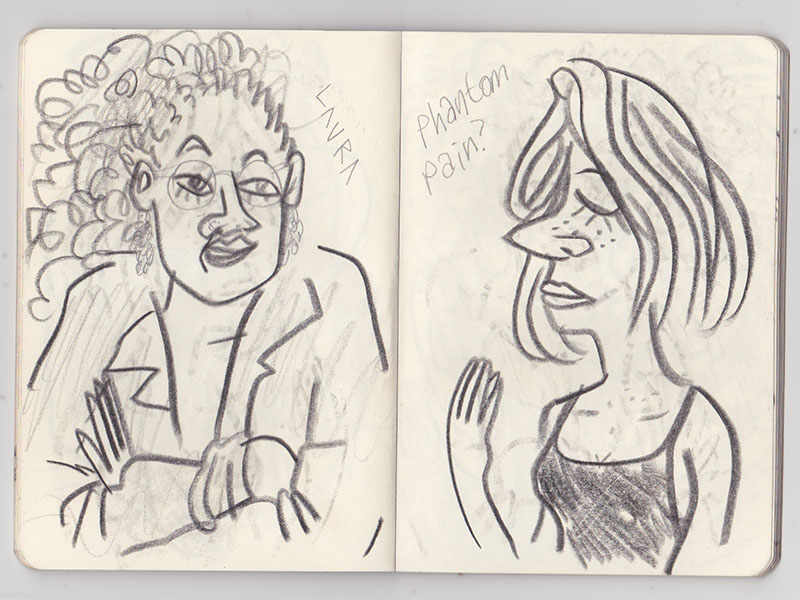 LAURA
phantom
pain?